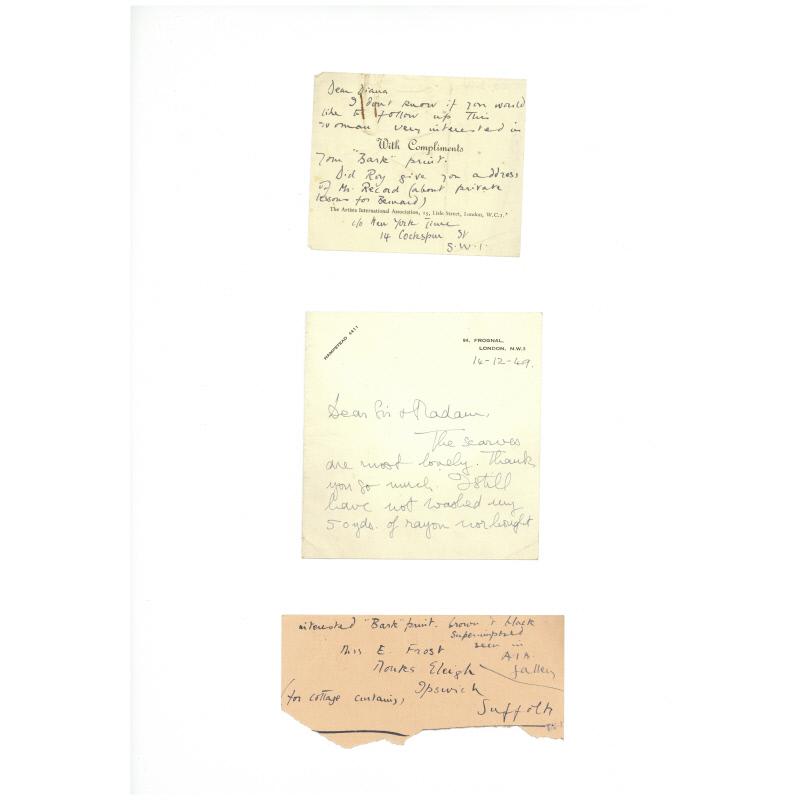 Dear Diana
I don't know if you would
like to follow up this
woman very interested in
With Compliments
your "Bark" print.
Did Roy give you address
of Mr. Record (about private
lessons for Bernard)
The Artists International Association, 15, Lisle Street, London, W.C.2.
c/o New York Times
14 Cockspur St
S.W.1.
HAMPSTEAD 6411
94, FROGNAL,
LONDON, N.W.3
14-12-49.
Dear Sir & Madam,
The scarves
are most lovely. Thank
you so much. I still
have not washed my
50 yds. of rayon nor bought
interested "Bark" print. brown & black
superimposed
seen in
Mrs E. Frost
A I A
Monks Eleigh
Gallery
Ipswich
(for cottage curtains)
Suffolk